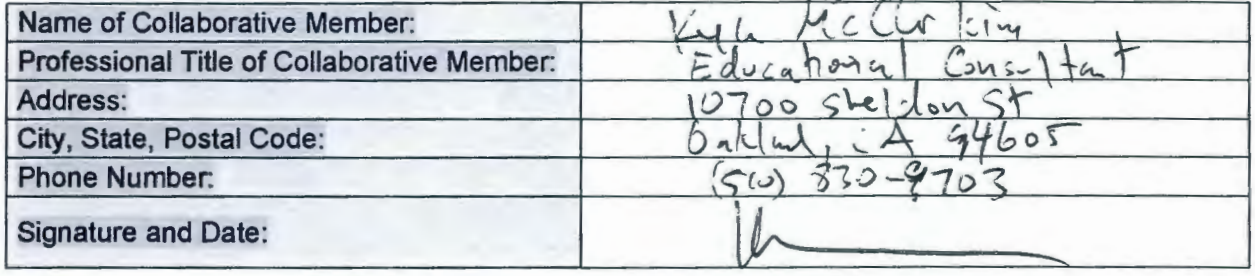 Name of Collaborative Member: Kyla
Professional Title of Collaborative Member: Educational Consultant
Address: 10700 Sheldon St
City, State, Postal Code: Oakland, CA 94605
Phone Number: (510) 830-9703
Signature and Date: